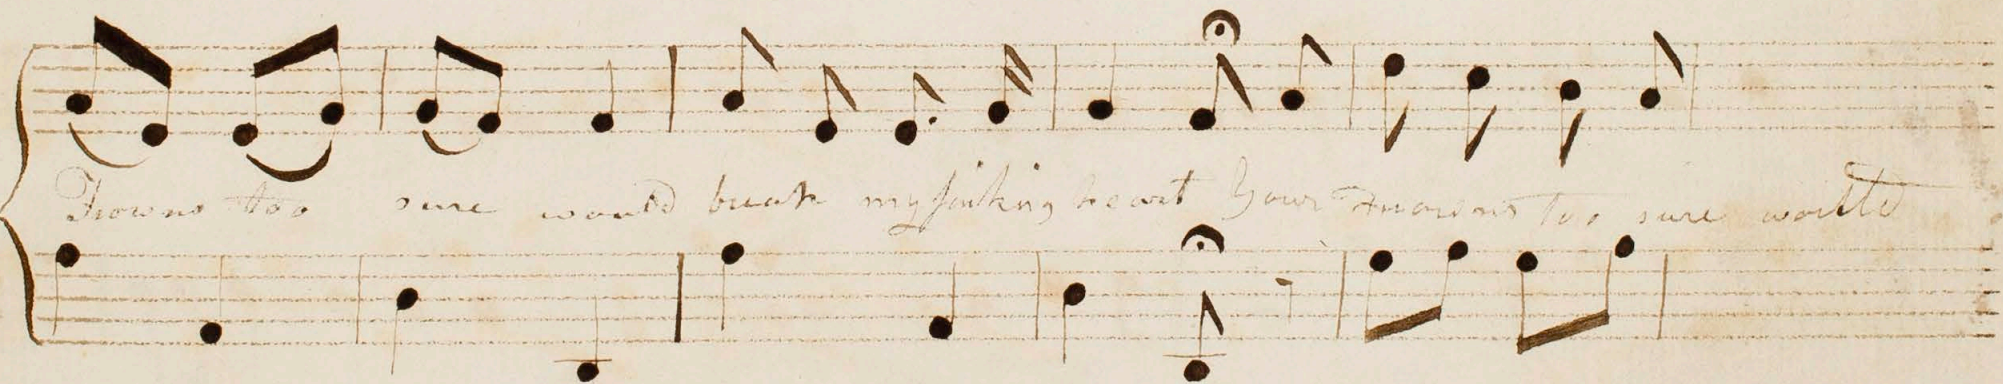 Frowns too sure would break my sinking heart Your Frowns too sure would